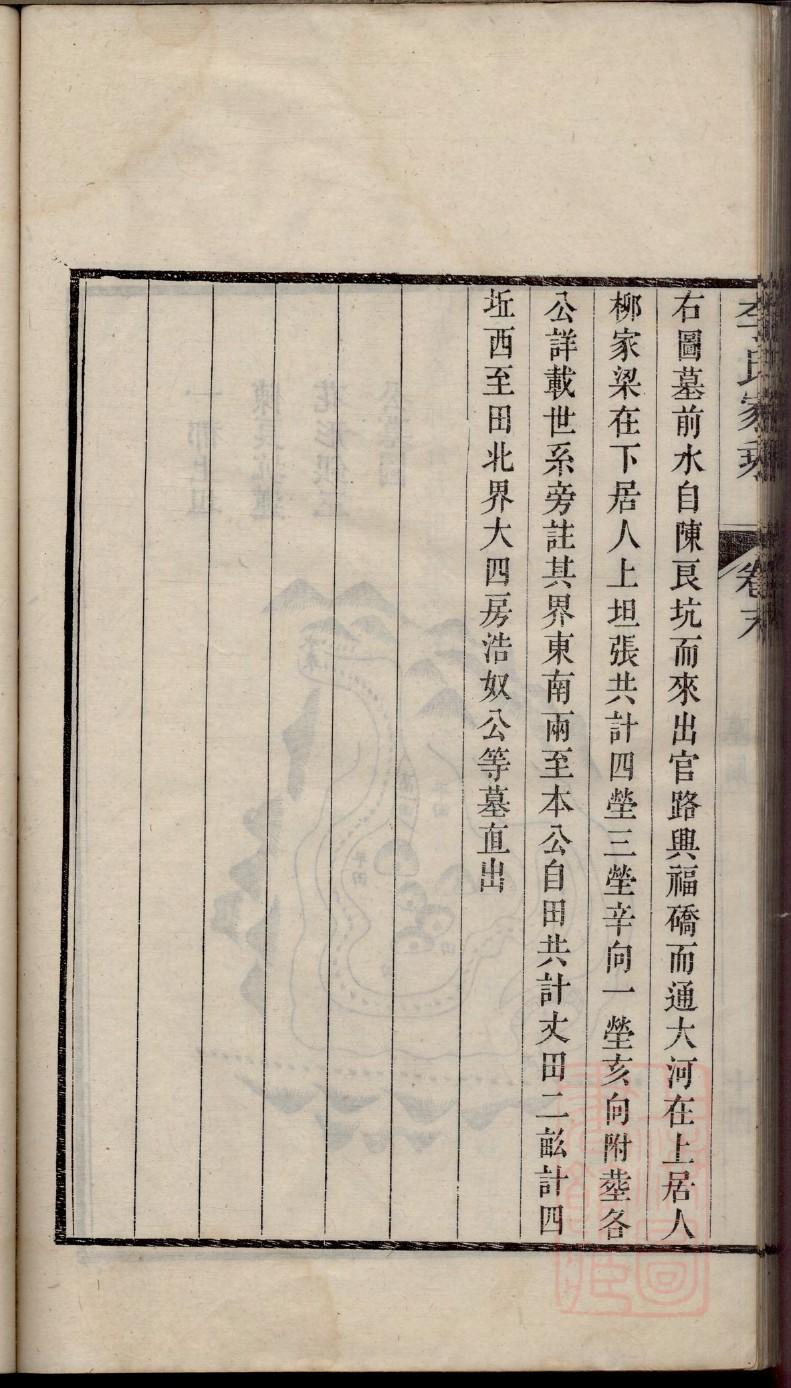 李氏家乘 卷末
右圖墓前水自陳艮坑而來出官路興福礄而通大河在上居人
柳家梁在下居人上坦張共計四塋三塋辛向一塋亥向附塟各
公詳載世系旁註其界東南兩至本公自田共計丈田二畝計四
坵西至田北界大四房浩奴公等墓直出